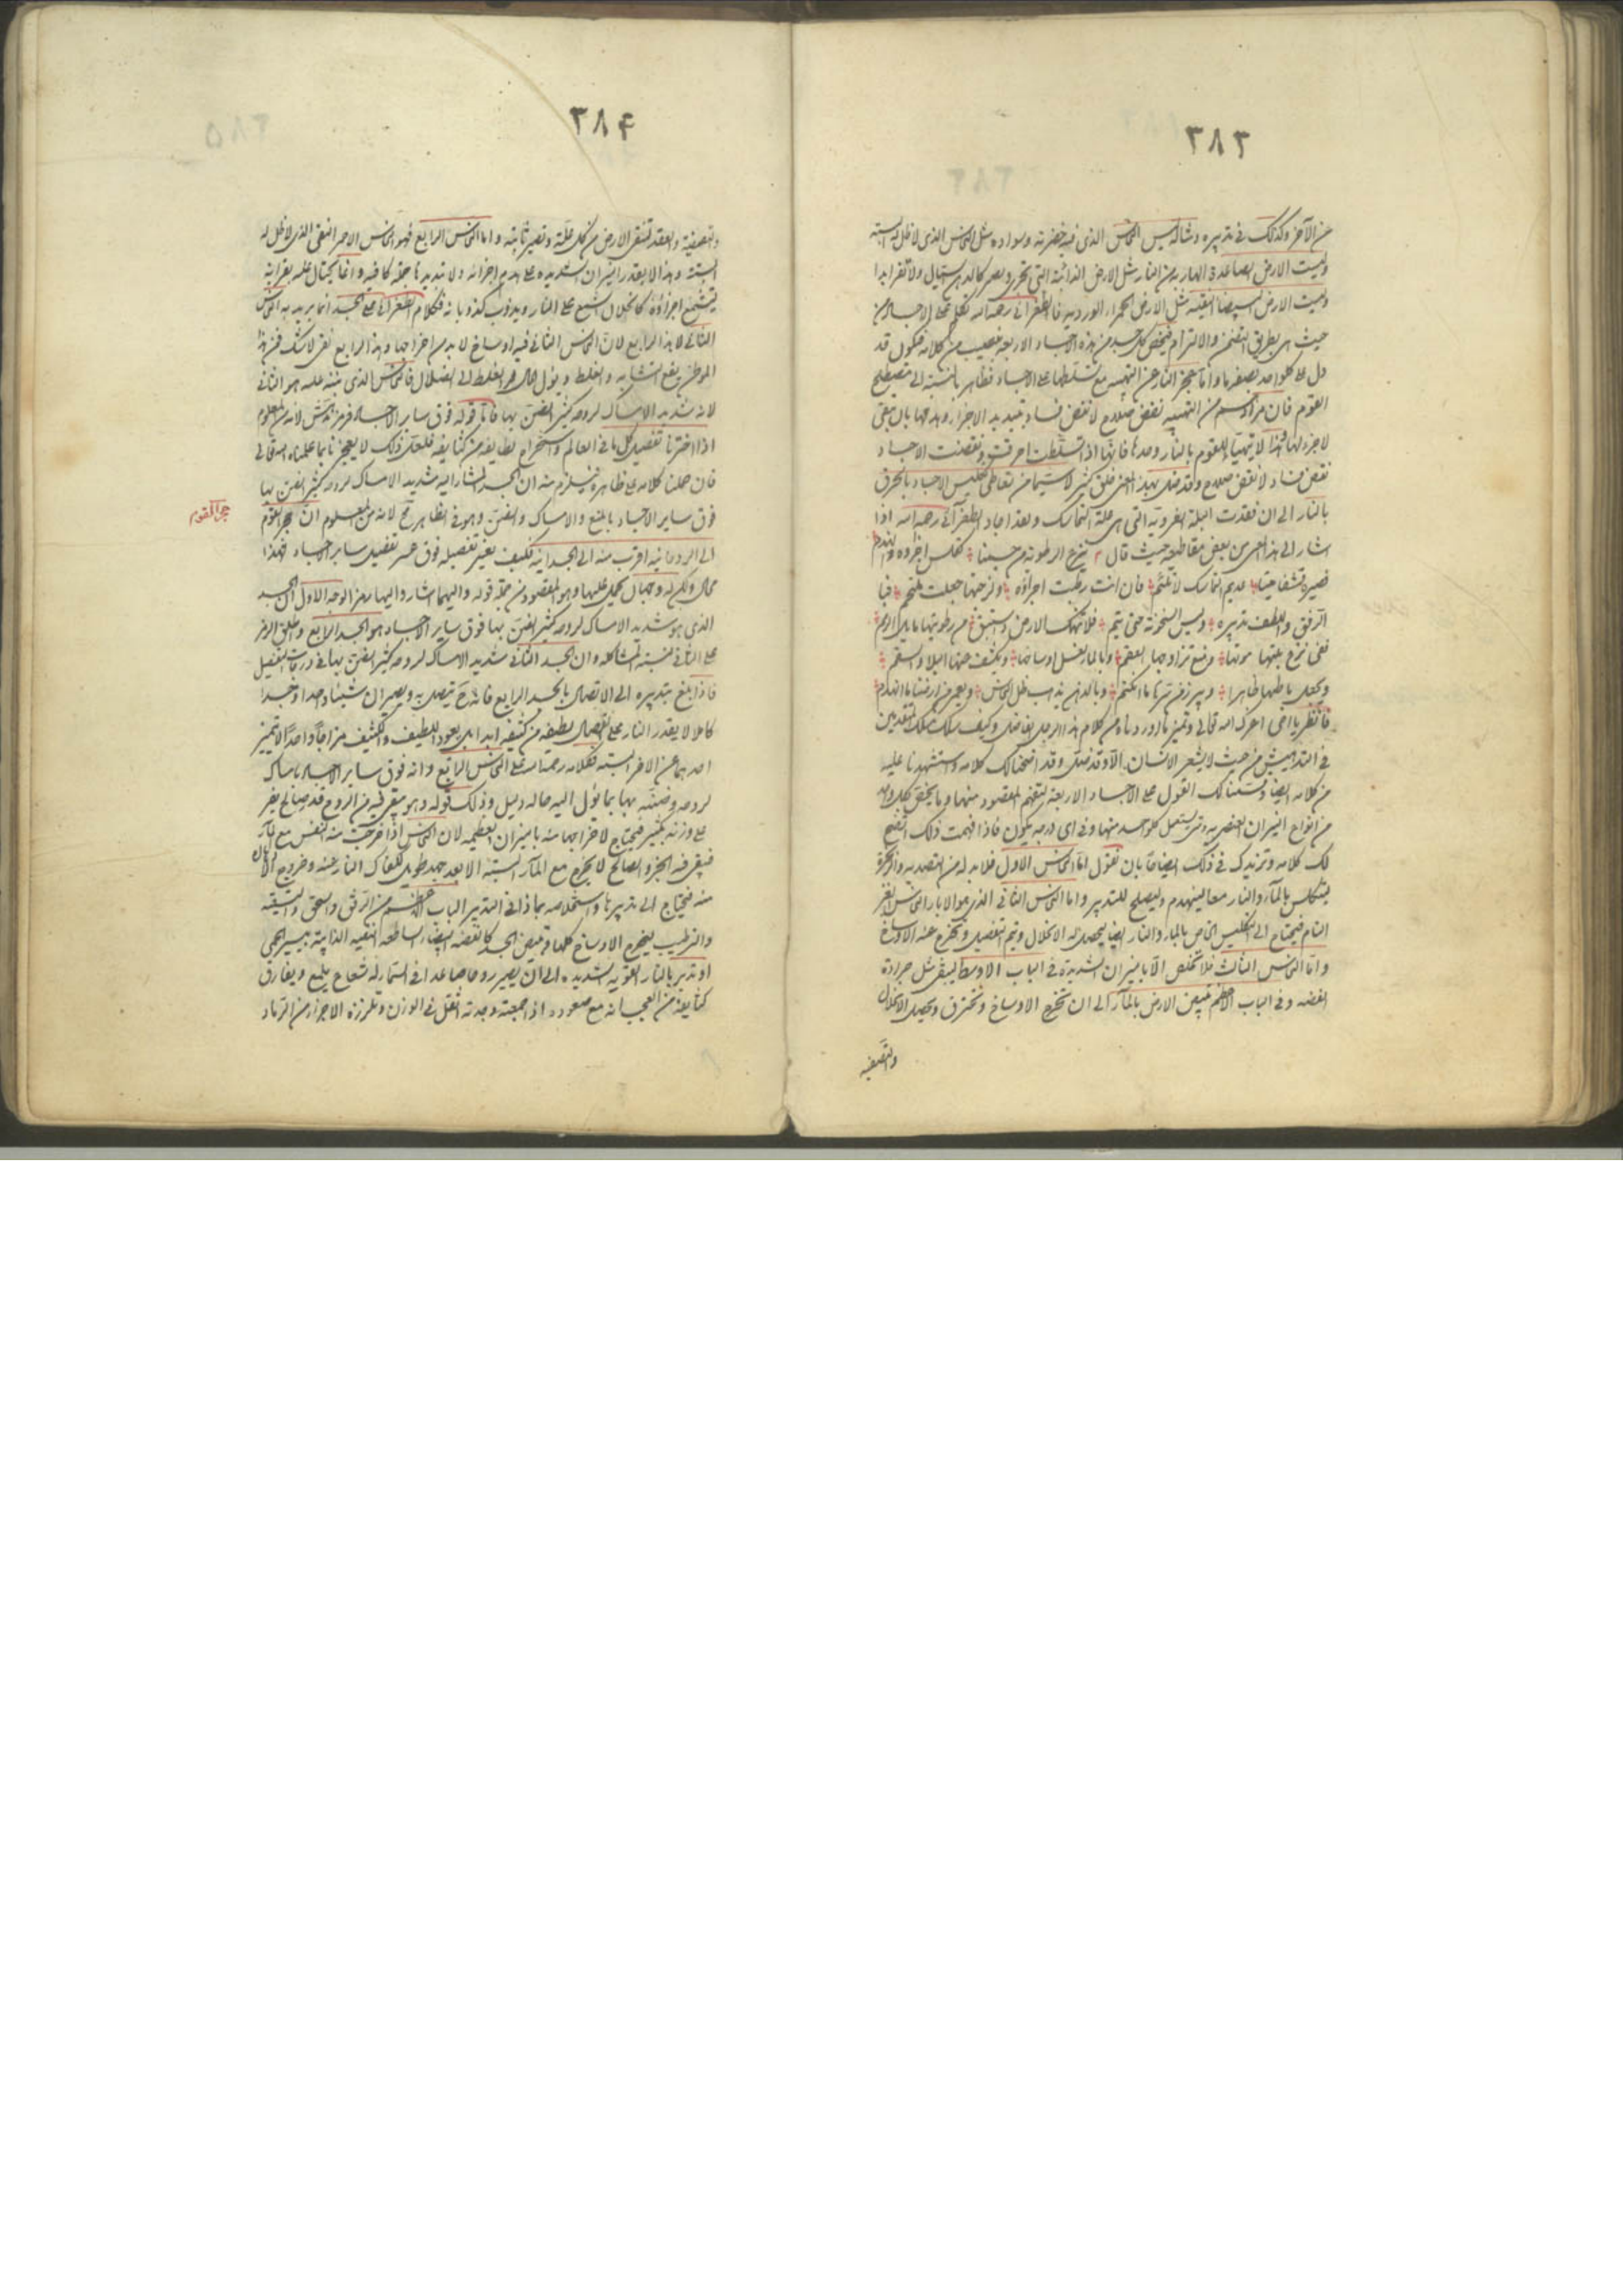 ٣٨٣
عن الآخر وكذلك في تدبيره وشاكه ليس النحاس الذي فيه خضرته وسواده مثل النحاس الذي لا ظل له البتة
وليست الارض الصاعدة الهاربة من النار مثل الارض الذائبة التي تجري وتصير كالدهن ولا تفر ابدا
وليست الارض البيضا النقية مثل الارض الحمراء الوردية فالطغرائي رحمه الله تكلم على الاجساد من
حيث هي بطريق التضمن والالتزام فيخص كل جسد من هذه الاجساد الاربعة بنصيب من كلامه فيكون قد
دل على كل واحد بصفة ما واما عجز النار عن التهبية مع تسلطها على الاجساد فظاهر بالنسبة الى مصطلح
القوم فان مرادهم من التهبية نقض صلاح لا نقض فساد بتبديد الاجزاء وهدمها بان يبقى
لا جزء لها فهذا لا يتهيأ للقوم بالنار وحدها فانها اذا تسلطت احرقت ونقضت الاجساد
نقض فساد لا نقض صلاح وقد ضل بهذا المعنى خلق كثير لا سيما من تعاطى تكليس الاجساد بالحرق
بالنار الى ان فقدت البلة الغروية التي هي علة التماسك ولقد اجاد الطغرائي رحمه الله اذا
اشار الى هذا المعنى في بعض مقاطيعه حيث قال ينزع الرطوبة من جسمنا تكلس اجزاؤه وانهدم
فصيره قشفا ميتا عديم التماسك لا يلتئم فان انت رطبت اجزاؤه ولزجتها جعلت تلتحم فبا
الرفق واللطف تدبيره وليس السخونة حتى يتم فلا تنهك الارض واستبق من رطوبتها
ففي نزع بلتها موتها ومنع تزاوجها العقم وبالماء تغسل اوساخها ويكشف عنها البلا والسقم
وتجعل باطنها ظاهرا ويبرز من سرها ما انكتم وبالدهن يذهب ظل النحاس ويعمر من ارضنا ما انهدم
فانظر يا اخي اعزك الله تعالى وتميز ما اوردناه من كلام هذا الرجل الفاضل وكيف سلك مسلك المتقدمين
في التدهيش من حيث لا يشعر الانسان الا وقد ضل وقد اوضحنا لك كلامه واستشهدنا عليه
من كلامه ايضا وقسمنا لك القول على الاجساد الاربعة لتفهم المقصود منها وما يختص بكل واحد
من انواع النيران العنصرية ومتى يستعمل كل واحد منها وفي اي درجة يكون فاذا فهمت ذلك اتضح
لك كلامه ونزيدك في ذلك ايضاحا بان نقول اما النحاس الاول فلا بد له من التصدية والزنجرة
ليتكلس بالماء والنار معا لينهدم وليصلح للتدبير واما النحاس الثاني الذي هو الابار النحاس الغير
التام فيحتاج الى التكليس الخاص بالماء والنار ايضا ليحصل له الانحلال ويتم التفصيل وتخرج عنه الاوساخ
واما النحاس الثالث فلا يخلص الا بالنيران الشديدة في الباب الاوسط ليبقى مثل جرادة
الفضة وفي الباب الاعظم تبيض الارض بالماء الى ان تخرج الاوساخ وتحترق ويحصل الانحلال
والتصفية
٣٨۴
والتصفية والعقد لتنقى الارض من كل علة وتصير ثابتة واما النحاس الرابع فهو النحاس الاحمر النقي الذي لا ظل له
البتة وهذا لا يقدر النيران الشديدة على هدم اجزائه ولا تبديدها جملة كافية وانما يحتال عليه بقرابته
ليتشمع اجزاؤه كانحلال الشمع على النار ويذوب كذوبانه فكلام الطغرائي على الجسد انما يريد به النحاس
الثاني لا هذا الرابع لان النحاس الثاني فيه اوساخ لا بد من اخراجها وهذا الرابع نقي لا شك فمن هذا
الموطن يقع التشابه والغلط ويؤل حال الغلط الى الضلال فالنحاس الذي ينبه عليه هو الثاني
لانه شديد الامساك لروحه كثير الضن بها فاما قوله فوق ساير الاجساد فرمز لانه من المعلوم
اذا اخترنا تفصيل كل ما في العالم واستخراج لطايفه من كثايفه فعلنا ذلك لا يعجزنا بما علمناه الله تعالى
فان حملنا كلامه على ظاهره فيلزم منه ان الجسد المشار اليه شديد الامساك لروحه كثير الضن بها
فوق ساير الاجساد بالمنع والامساك والضن وهو في الظاهر مح لانه من المعلوم ان حجر القوم
حجر القوم
الى الروحانية اقرب منه الى الجسدانية فكيف يعسر تفصيله فوق عسر تفصيل ساير الاجساد فهذا
محال ولكن له وجهان يحمل عليهما وهو المقصود من جملة قوله واليهما اشار الوجه الاول ان الجسد
الذي هو شديد الامساك لروحه كثير الضن بها فوق ساير الاجساد هو الجسد الرابع واطلق الرمز
على الثاني لنسبة المشاكلة وان الجسد الثاني شديد الامساك لروحه كثير الضن بها في درجات التفصيل
فاذا بلغ بتدبيره الى الاتصال بالجسد الرابع فانه ح يتصل به ويصيران شيئا واحدا وجسدا
كاملا لا يقدر النار على انفصال لطيفه من كثيفه ابدا بل يعود اللطيف والكثيف مزاجا واحدا لا يتميز
احدهما عن الاخر البتة فكلامه رحمه الله على النحاس الرابع وانه فوق ساير الاجساد بامساكه
لروحه وضنه بها بما يؤل اليه حاله دليل وذلك قوله وهو يبقى فيه من الروح قدر صالح يفر
على وزنه بكثير فيحتاج لاخراجها منه بالنيران العظيمة لان النحاس اذا خرجت منه النفس مع الماء
فبقى فيه الجزء الصالح لا يخرج مع الماء البتة الا بعد جهد طويل لتفكك النار عنه وخروج الاثفال
منه فيحتاج الى تدبيرها واستخلاصه بماذا في التدبير الباب الاعظم من الرفق والسحق والتسقية
والترطيب ليخرج الاوساخ كلها وتبيض الجسد كالفضة البيضاء الساطعة النقية الذائبة بيسير الحمى
او تدبر بالنار القوية الشديدة الى ان يصير روحا صاعدا في السماء له شعاع يلمع ويفارق
كثايفه من العجب انه مع صعوده اذا جمعته وجدته اثقل في الوزن وتلرززه الاجزاء من الرماد